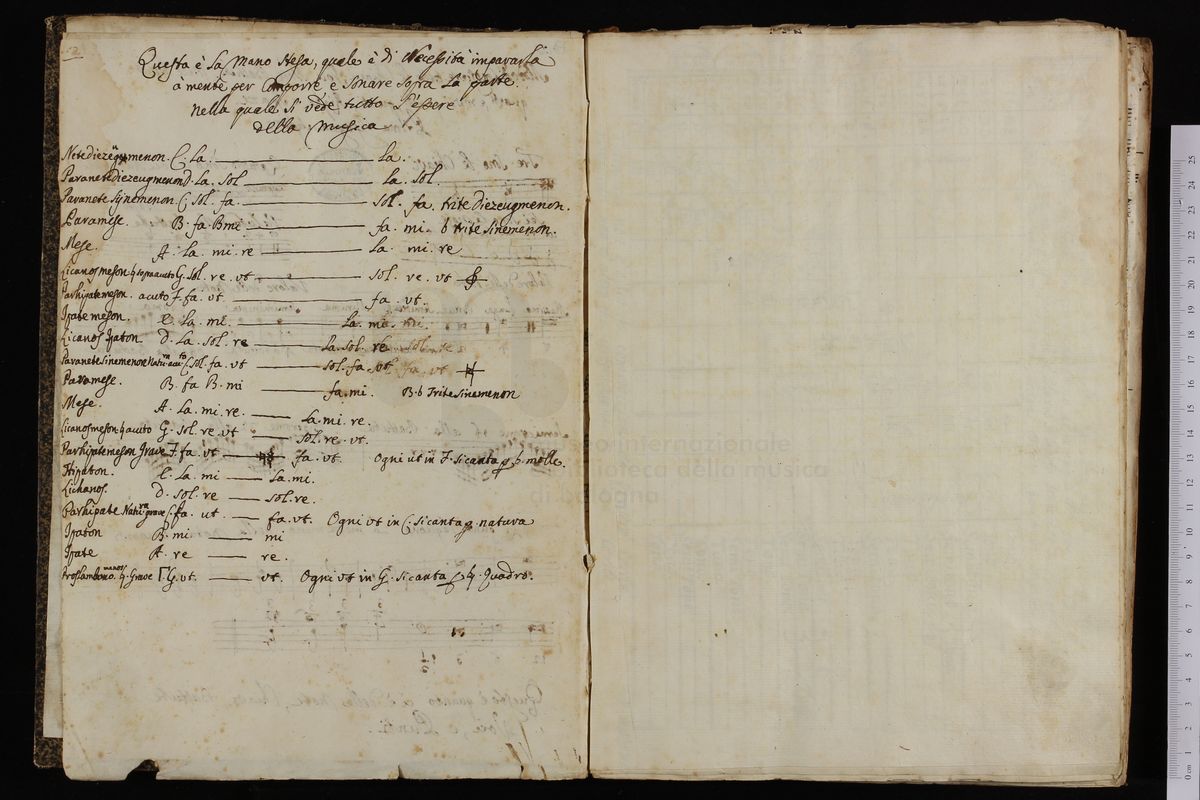 52
Questa è la Mano stesa, quale è di Necessità impararla
à mente per Comporre e sonare sopra La parte
nella quale si vede tutto l'essere
della Musica
Nete diezeugmenon E. La. La.
Paranete diezeugmenon D. La. Sol La. Sol.
Paranete synemenon C. Sol. fa. Sol. fa. trite Diezeugmenon.
Paramese. B. fa. B mi fa. mi. b trite sinemenon.
Mese. A. La. mi. re La. mi. re
Licanos meson ♮ sopra acuto G. Sol. re. vt Sol. re. vt
Parhipate meson. acuto F. fa. vt. fa. vt.
Ipate meson. E. La. mi. La. mi.
Licanos Ipaton D. La. Sol. re La. Sol. re
Paranete Sinemenon Natura acuto C. Sol. fa. vt Sol. fa. vt
Paramese. B. fa B. mi fa. mi. B. b Trite Sinemenon
Mese. A. La. mi. re. La. mi. re.
Licanos meson ♮ acuto G. Sol. re. vt Sol. re. vt.
Parhipate meson Grave F. fa. vt fa. vt. Ogni ut in F. si canta p. b. molle.
Hipaton. E. La. mi La. mi.
Lichanos. D. Sol. re Sol. re.
Parhipate Natura grave C. fa. ut. fa. vt. Ogni vt in C. si canta p. natura
Ipaton B. mi mi
Ipate A. re re.
Proslambanomenos ♮ Grave Γ. G. vt. vt. Ogni vt in G. si canta p. ♮ Quadro.
museo internazionale
e biblioteca della musica
di bologna